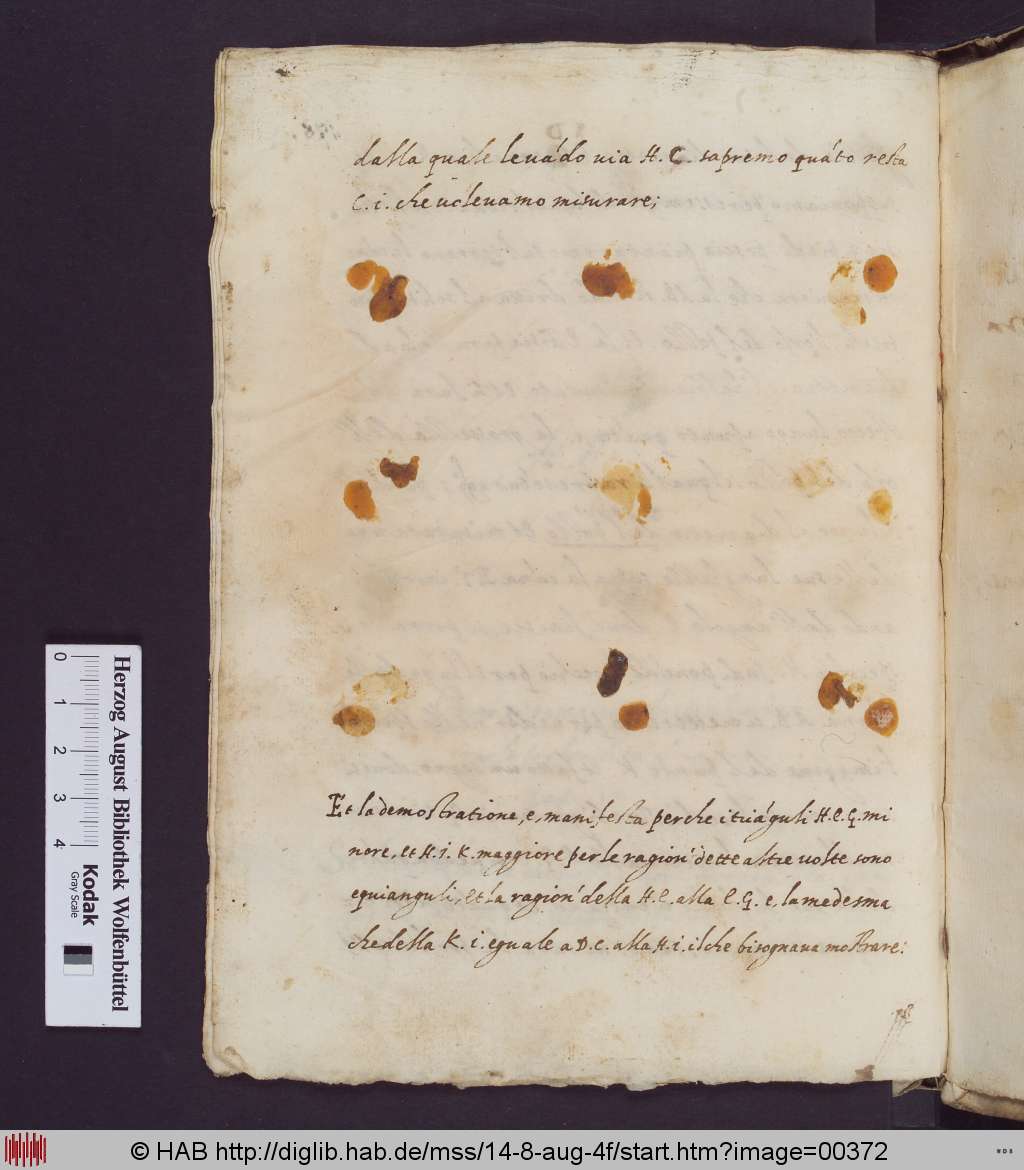 dalla quale leuádo uia H. C. sapremo quáto resta
C. i. che uoleuamo misurare;
Et la demostratione, e, manifesta perche i triáguli H. C. G. mi
nore, et H. i. K. maggiore per le ragion' dette altre uolte sono
equianguli, et la ragion' della H. C. alla C. G. e, la medesma
che della K. i. eguale a D. C. alla H. i. il che bisognaua mostrare:
0
1
2
3
4
Herzog August Bibliothek Wolfenbüttel
Kodak
Gray Scale
© HAB http://diglib.hab.de/mss/14-8-aug-4f/start.htm?image=00372
WDB